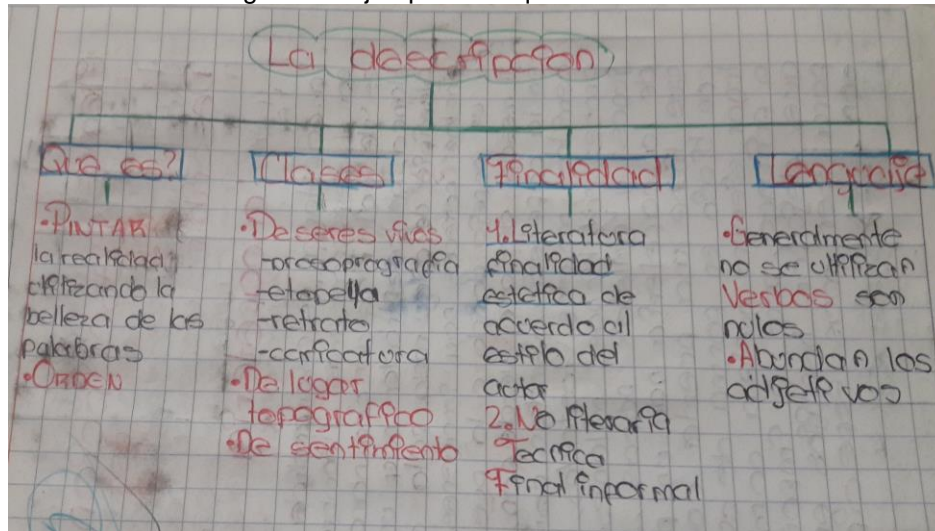 La descripcion
Que es?
• PINTAR
la realidad
utilizando la
belleza de las
palabras
• ORDEN
Clases
• De seres vivos
-prosopragrafia
-etopella
-retrato
-caricatura
• De lugar
topografico
• De sentimiento
Finalidad
1. Literatura
finalidad
estetica de
acuerdo al
estilo del
autor
2. No literaria
Tecnica
Final informal
Lenguaje
• Generalmente
no se utilizan
Verbos son
nulos
• Abundan los
adjetivos